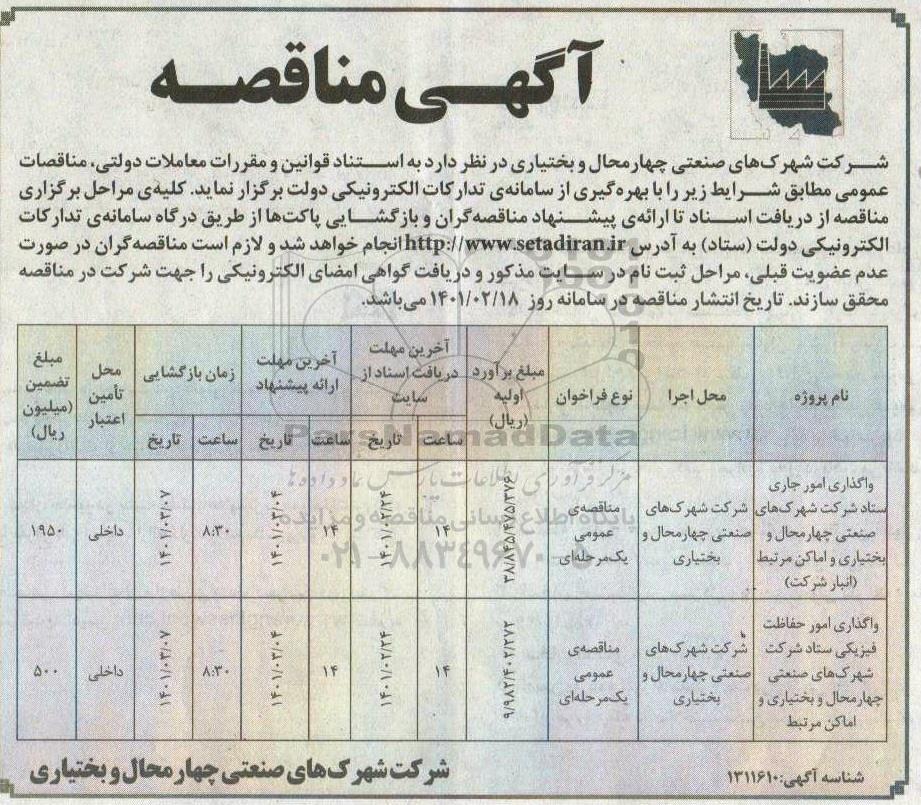 آگهی مناقصه
شرکت شهرک‌های صنعتی چهارمحال و بختیاری در نظر دارد به استناد قوانین و مقررات معاملات دولتی، مناقصات
عمومی مطابق شرایط زیر را با بهره‌گیری از سامانه‌ی تدارکات الکترونیکی دولت برگزار نماید. کلیه‌ی مراحل برگزاری
مناقصه از دریافت اسناد تا ارائه‌ی پیشنهاد مناقصه‌گران و بازگشایی پاکت‌ها از طریق درگاه سامانه‌ی تدارکات
الکترونیکی دولت (ستاد) به آدرس http://www.setadiran.ir انجام خواهد شد و لازم است مناقصه‌گران در صورت
عدم عضویت قبلی، مراحل ثبت نام در سایت مذکور و دریافت گواهی امضای الکترونیکی را جهت شرکت در مناقصه
محقق سازند. تاریخ انتشار مناقصه در سامانه روز ۱۴۰۱/۰۲/۱۸ می‌باشد.
نام پروژه
محل اجرا
نوع فراخوان
مبلغ برآورد
اولیه
(ریال)
آخرین مهلت
دریافت اسناد از
سایت
آخرین مهلت
ارائه پیشنهاد
زمان بازگشایی
محل
تأمین
اعتبار
مبلغ
تضمین
(میلیون
ریال)
ساعت تاریخ ساعت تاریخ ساعت تاریخ
واگذاری امور جاری
ستاد شرکت شهرک‌های
صنعتی چهارمحال و
بختیاری و اماکن مرتبط
(انبار شرکت)
شرکت شهرک‌های
صنعتی چهارمحال و
بختیاری
مناقصه‌ی
عمومی
یک‌مرحله‌ای
۳۸/۸۴۵/۴۷۵/۳۷۶
۱۴
۱۴۰۱/۰۲/۲۴
۱۴
۱۴۰۱/۰۳/۰۴
۸:۳۰
۱۴۰۱/۰۳/۰۷
داخلی
۱۹۵۰
واگذاری امور حفاظت
فیزیکی ستاد شرکت
شهرک‌های صنعتی
چهارمحال و بختیاری و
اماکن مرتبط
شرکت شهرک‌های
صنعتی چهارمحال و
بختیاری
مناقصه‌ی
عمومی
یک‌مرحله‌ای
۹/۹۸۲/۴۰۲/۲۷۲
۱۴
۱۴۰۱/۰۲/۲۴
۱۴
۱۴۰۱/۰۳/۰۴
۸:۳۰
۱۴۰۱/۰۳/۰۷
داخلی
۵۰۰
شناسه آگهی: ۱۳۱۱۶۱۰
شرکت شهرک‌های صنعتی چهارمحال و بختیاری
ParsNamadData
مرکز فرآوری اطلاعات پارس نماد داده‌ها
پایگاه اطلاع رسانی مناقصه و مزایده
۰۲۱-۸۸۳۴۹۶۷۰-۵